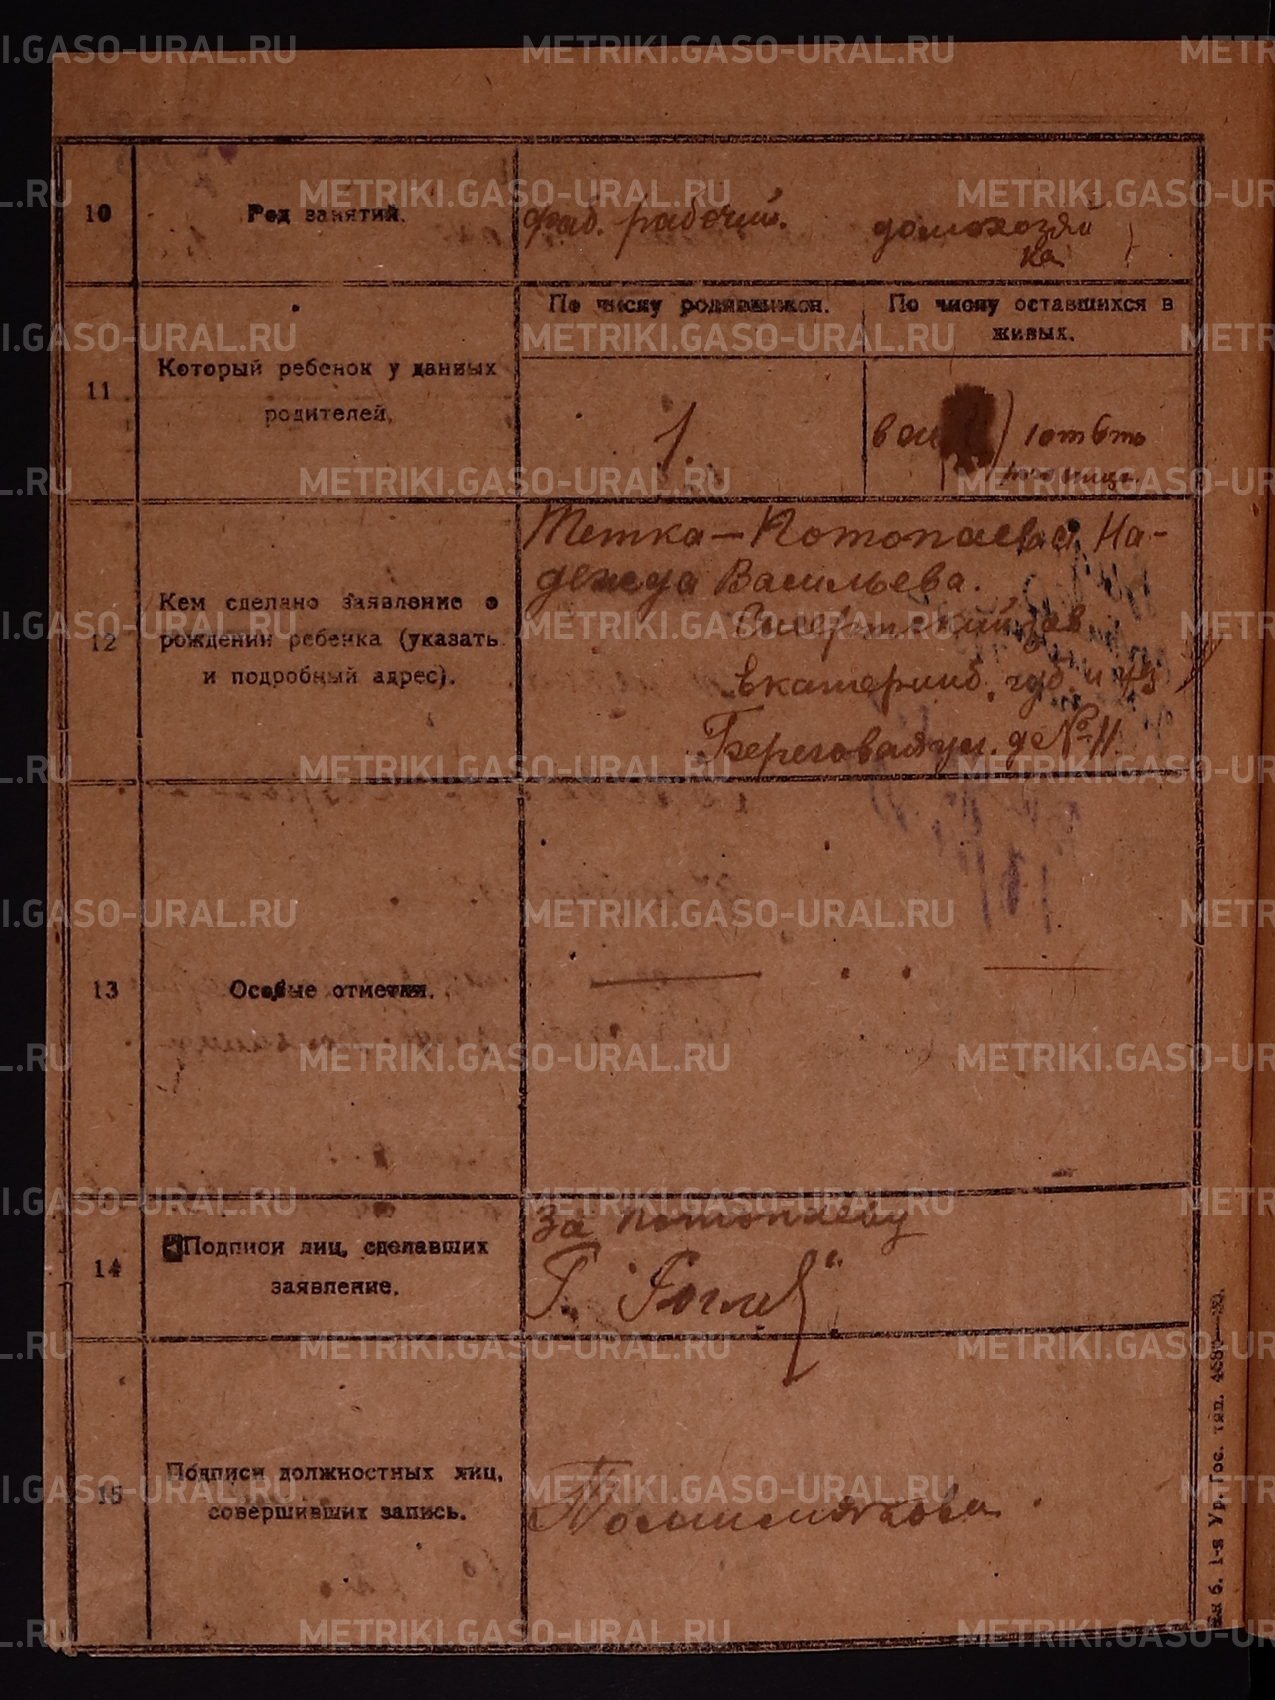 10
Род занятий.
фаб. рабочий.
домохозяй
ка
11
Который ребенок у данных
родителей.
По числу родившихся.
По числу оставшихся в
живых.
1.
12
Кем сделано заявление о
рождении ребенка (указать
и подробный адрес).
Тетка — Потопаева На-
дежда Васильева.
Сысертский зав.
Екатеринб. губ. и уз
Береговая ул. д № 11.
13
Особые отметки.
14
Подписи лиц, сделавших
заявление.
За Потопаеву
Г.
15
Подписи должностных лиц,
совершивших запись.
1-я Ур. Гос. тип.
METRIKI.GASO-URAL.RU